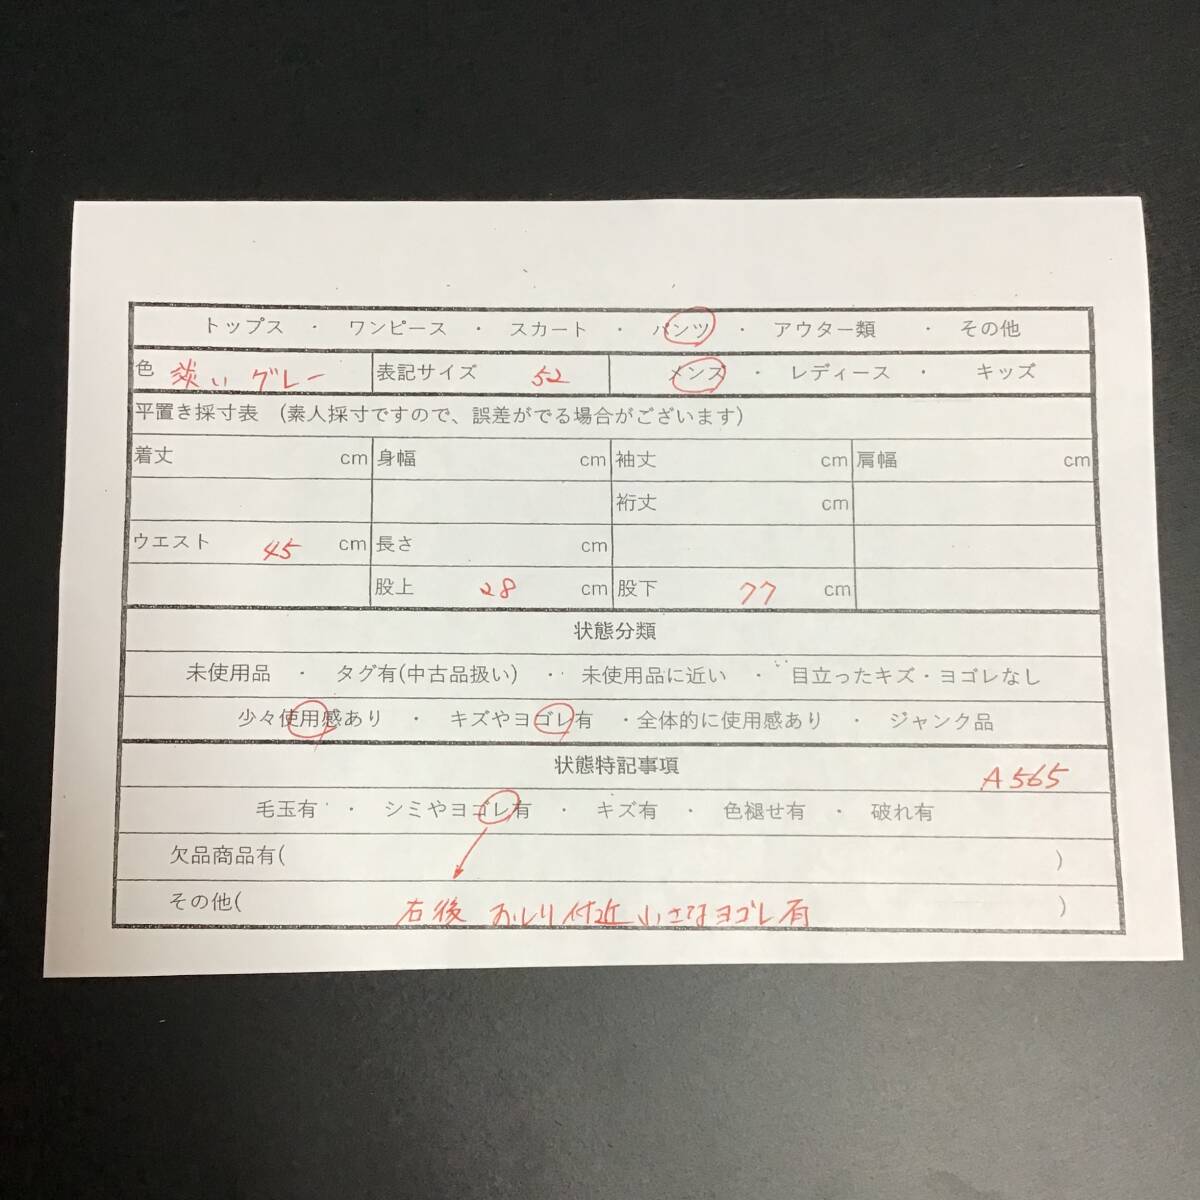 トップス ・ ワンピース ・ スカート ・ パンツ ・ アウター類 ・ その他
色 淡いグレー 表記サイズ 52 メンズ ・ レディース ・ キッズ
平置き採寸表 (素人採寸ですので、誤差がでる場合がございます)
着丈 cm 身幅 cm 袖丈 cm 肩幅 cm
裄丈 cm
ウエスト 45 cm 長さ cm
股上 28 cm 股下 77 cm
状態分類
未使用品 ・ タグ有(中古品扱い) ・ 未使用品に近い ・ 目立ったキズ・ヨゴレなし
少々使用感あり ・ キズやヨゴレ有 ・全体的に使用感あり ・ ジャンク品
状態特記事項 A565
毛玉有 ・ シミやヨゴレ有 ・ キズ有 ・ 色褪せ有 ・ 破れ有
欠品商品有( )
その他( 右後 おしり付近小さなヨゴレ有 )